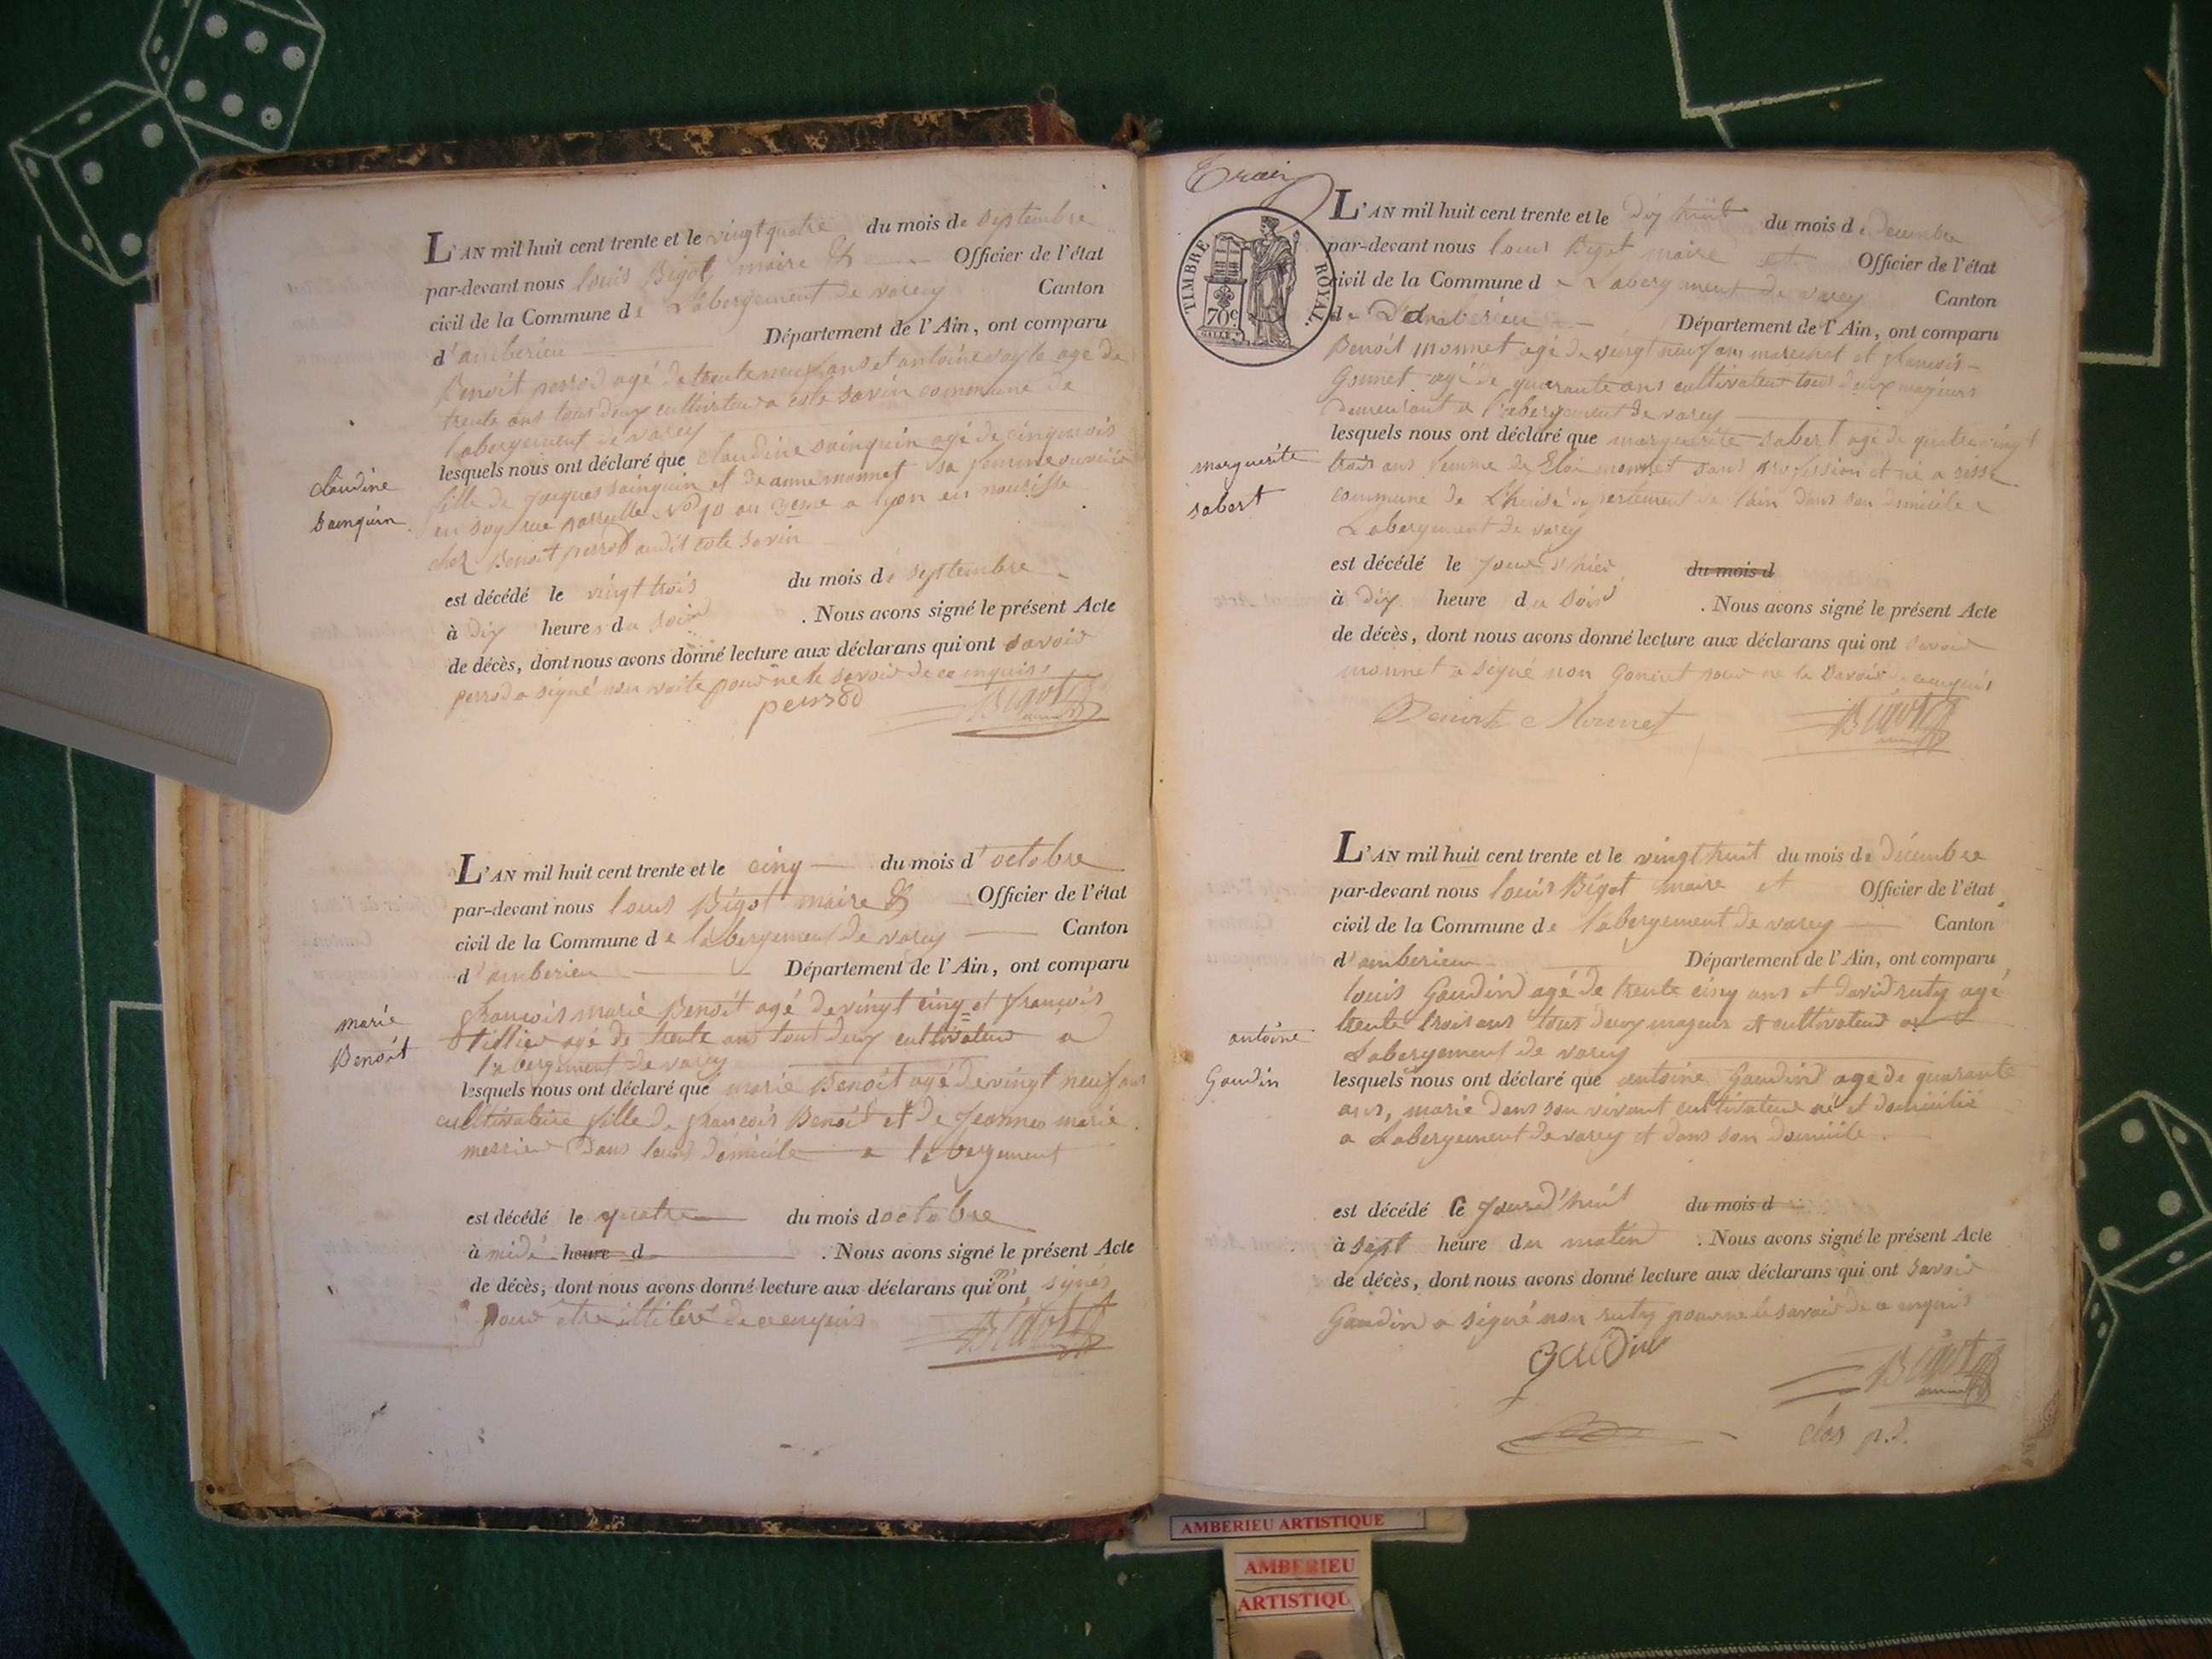 L'AN mil huit cent trente et le vingt quatre du mois de septembre
par-devant nous louis Bigot maire & Officier de l'état
civil de la Commune de Labergement de varey Canton
d'amberieu Département de l'Ain, ont comparu
Benoit perrod agé de trente neuf ans et antoine voyte agé de
trente ans tous deux cultivateurs a cote savin commune de
labergement de varey
lesquels nous ont déclaré que claudine sainquin agé de cinq mois
fille de Jacques sainquin et de anne monnet sa femme ouvriere
en soy rue No 10 au 3eme a lyon en nourisse
chez Benoit perrod audit cote savin
claudine
sainquin
est décédé le vingt trois du mois de septembre
à dix heures du soir . Nous avons signé le présent Acte
de décès, dont nous avons donné lecture aux déclarans qui ont savoir
perrod a signé non voite pour ne le savoir de ce enquis
perrod Bigot
L'AN mil huit cent trente et le cinq du mois d'octobre
par-devant nous louis Bigot maire & Officier de l'état
civil de la Commune de labergement de varey Canton
d'amberieu Département de l'Ain, ont comparu
francois marie Benoit agé de vingt cinq et francois
tillier agé de trente ans tout deux cultivateur a
labergement de varey
marie
Benoit
lesquels nous ont déclaré que marie Benoit agé de vingt neuf ans
cultivatrice fille de francois Benoit et de Jeanne marie
messier dans leurs domicile a labergement
est décédé le quatre du mois d octobre
à midi heure d . Nous avons signé le présent Acte
de décès, dont nous avons donné lecture aux déclarans qui n'ont signés
pour etre illitéré de ce enquis Bigot
Trair
TIMBRE ROYAL.
70c
L'AN mil huit cent trente et le dix huit du mois de decembre
par-devant nous louis Bigot maire et Officier de l'état
civil de la Commune de Labergement de varey Canton
de D'amberieu Département de l'Ain, ont comparu
Benoit monnet agé de vingt neuf ans marechal et francois
Gonnet agé de quarante ans cultivateur tous deux majeurs
demeurant a labergement de varey
lesquels nous ont déclaré que marguerite sabert agé de quatre vingt
trois ans femme de Eloi monnet sans profession et né a
commune de departement de l'ain dans son domicile a
Labergement de varey
marguerite
sabert
est décédé le jour d'hier du mois d
à dix heure du soir . Nous avons signé le présent Acte
de décès, dont nous avons donné lecture aux déclarans qui ont savoir
monnet a signé non Gonnet pour ne le savoir de ce enquis
Benoit Monnet Bigot
L'AN mil huit cent trente et le vingt huit du mois de décembre
par-devant nous louis Bigot maire et Officier de l'état
civil de la Commune de labergement de varey Canton
d'amberieu Département de l'Ain, ont comparu
louis Gaudin agé de trente cinq ans et david ruty agé
trente trois ans tous deux majeur et cultivateur a
Labergement de varey
antoine
Gaudin
lesquels nous ont déclaré que antoine Gaudin age de quarante
ans, marie dans son vivant cultivateur né et domicilié
a Labergement de varey et dans son domicile
est décédé le jourd'huit du mois d
à sept heure du matin . Nous avons signé le présent Acte
de décès, dont nous avons donné lecture aux déclarans qui ont savoir
Gaudin a signé non ruty pour ne le savoir de ce enquis
gaudin Bigot
clos p.
AMBERIEU ARTISTIQUE
AMBERIEU
ARTISTIQU